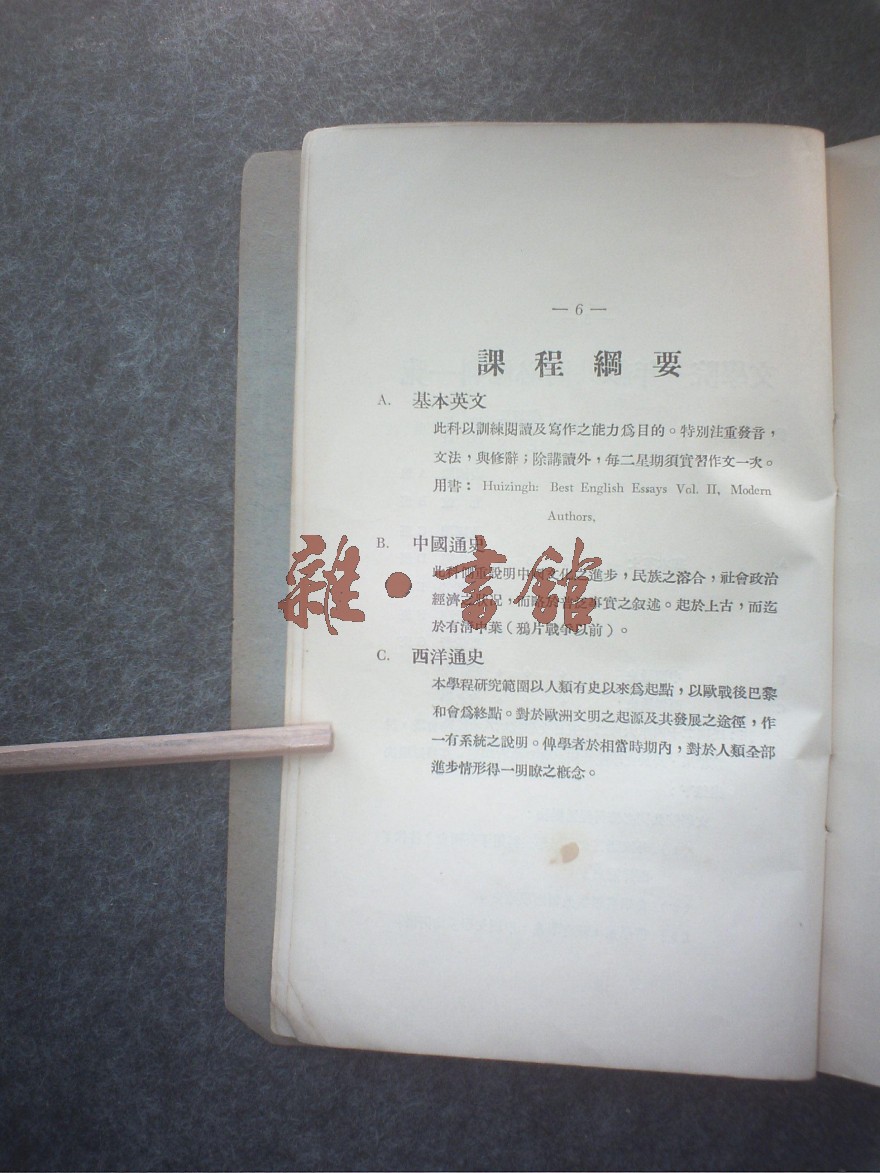 — 6 —
課程綱要
A. 基本英文
此科以訓練閱讀及寫作之能力爲目的。特別注重發音，
文法，與修辭；除講讀外，每二星期須實習作文一次。
用書： Huizingh: Best English Essays Vol. II, Modern
Authors,
B. 中國通史
此科側重說明中國文化之進步，民族之溶合，社會政治
經濟之狀況，而略於普泛事實之叙述。起於上古，而迄
於有清中葉（鴉片戰爭以前）。
C. 西洋通史
本學程研究範圍以人類有史以來爲起點，以歐戰後巴黎
和會爲終點。對於歐洲文明之起源及其發展之途徑，作
一有系統之說明。俾學者於相當時期內，對於人類全部
進步情形得一明瞭之概念。
雜·書館